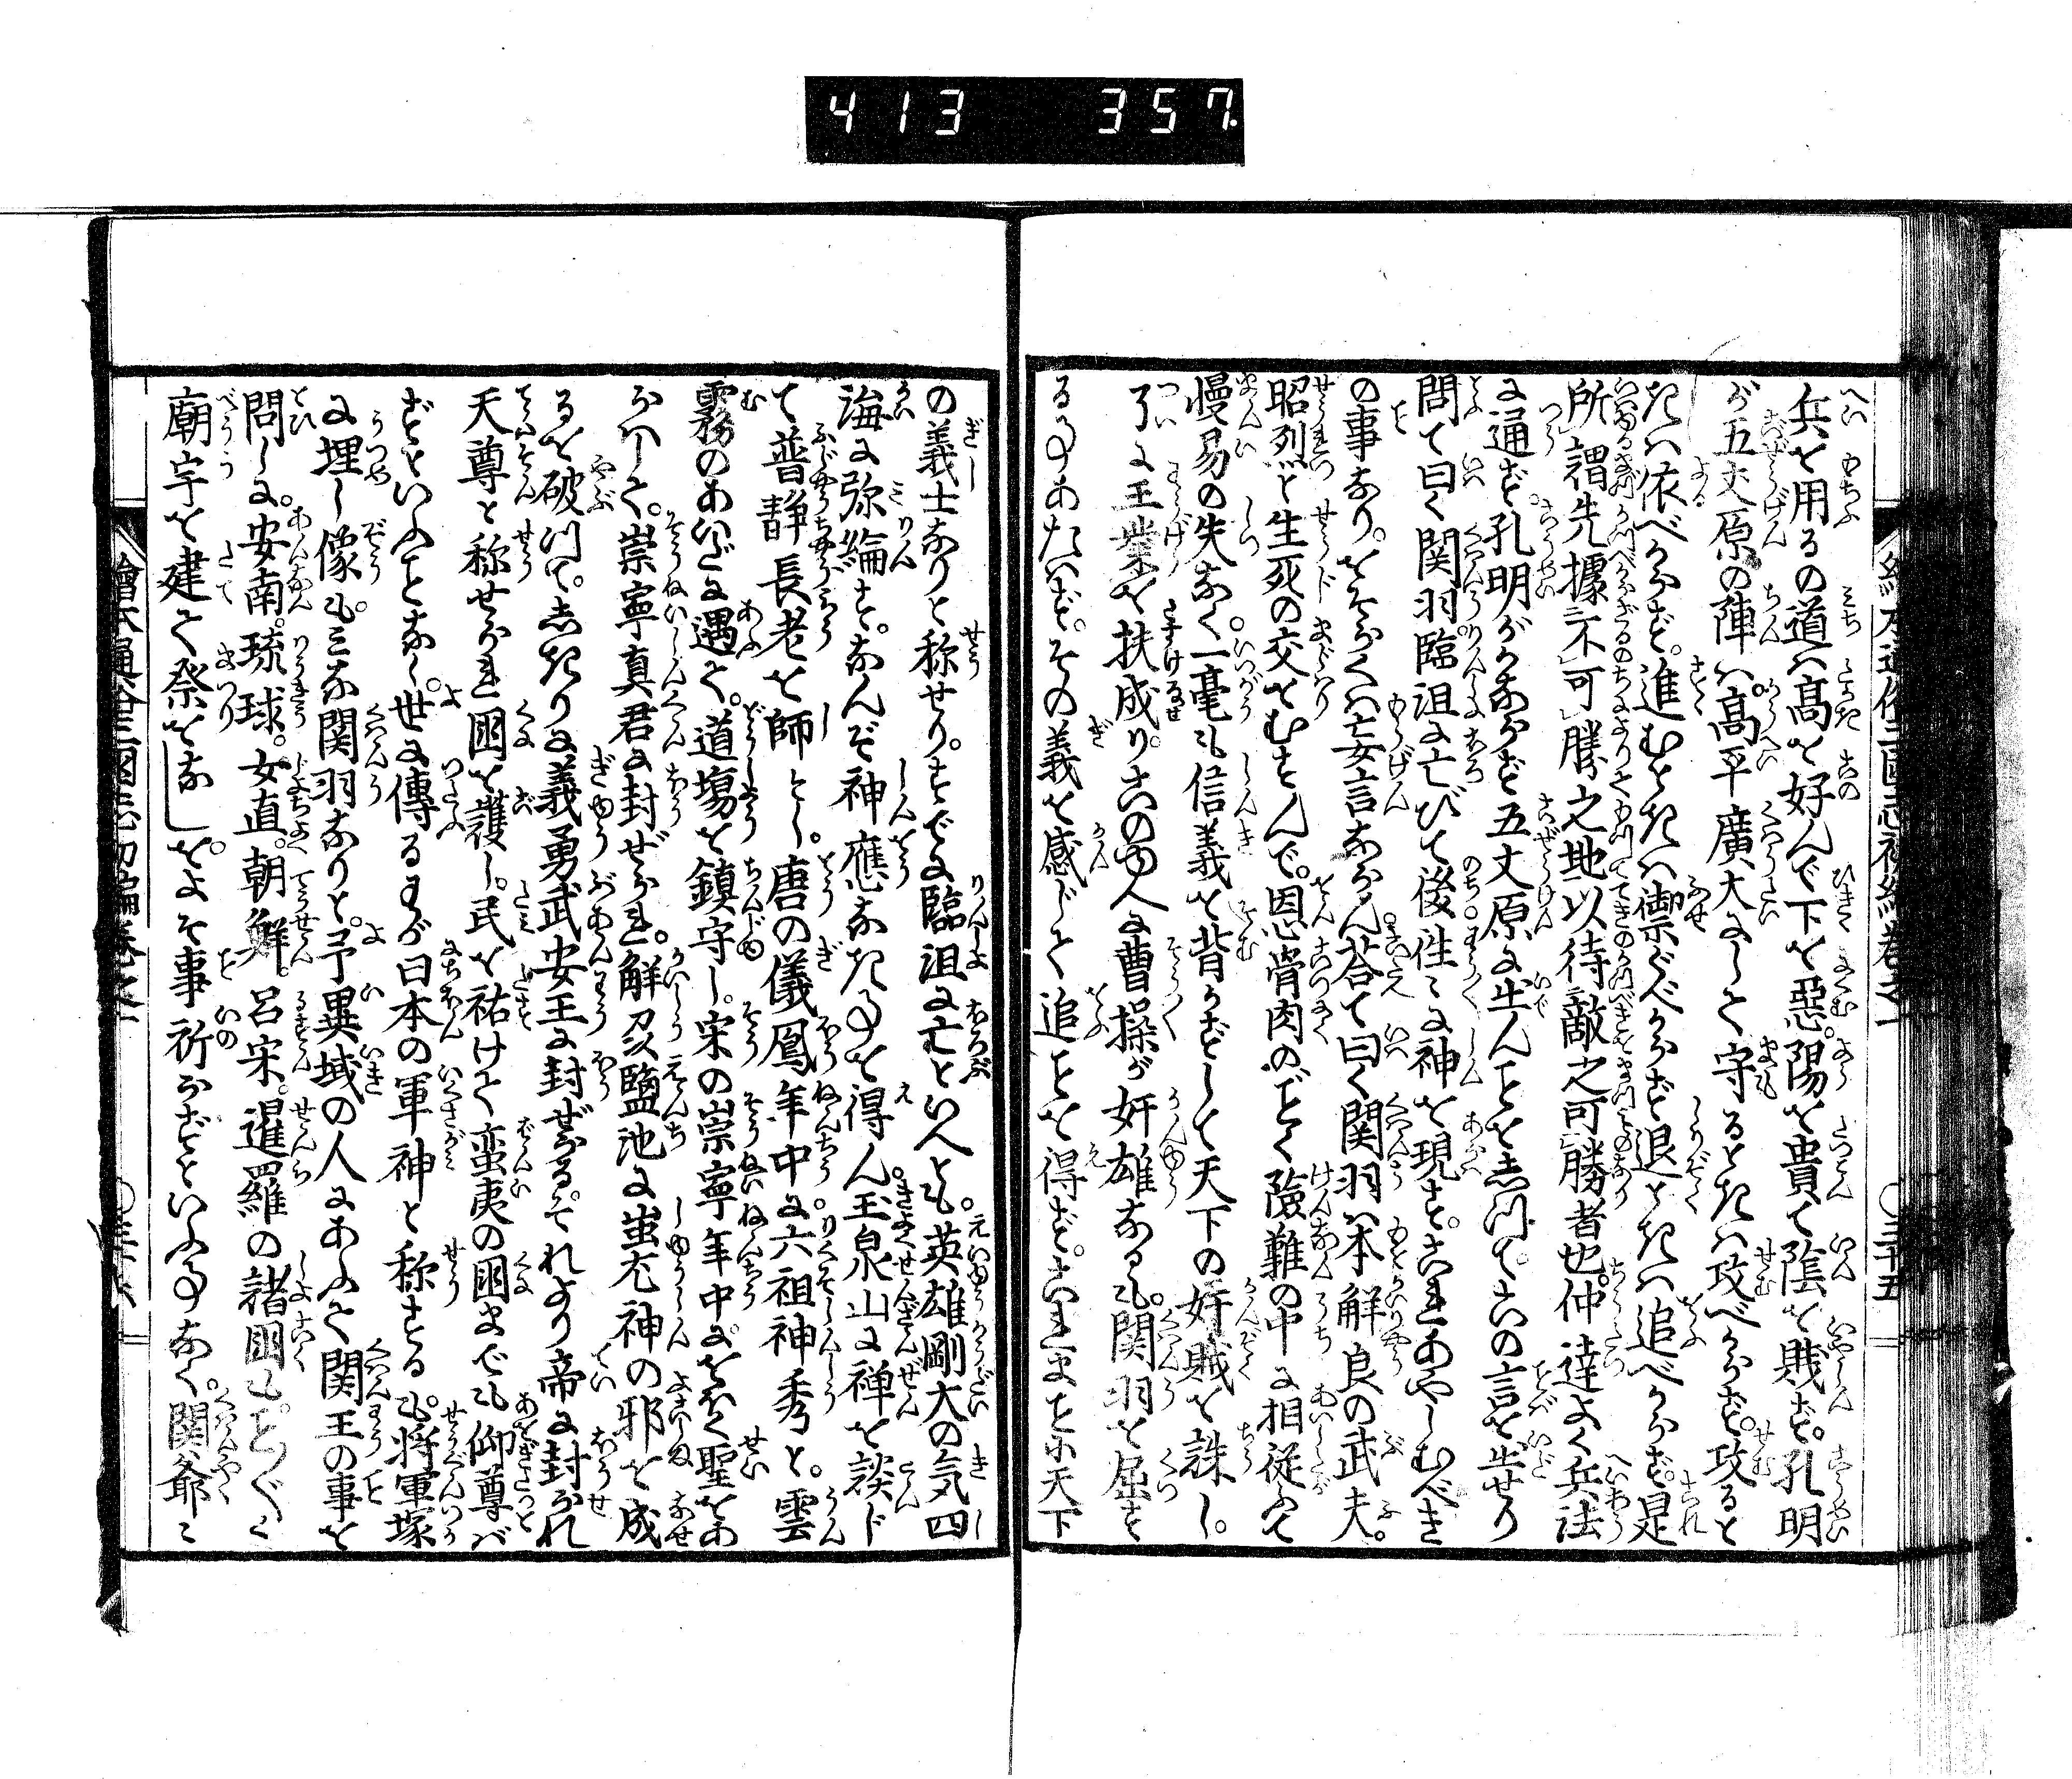 413 357
兵を用るの道は高を好んで下を惡。陽を貴て陰を賤ず。孔明
が五丈原の陣は。高平廣大にして守るときは攻べからず。攻ると
きは依べからず。進むときは禦ぐべからず退ときは追べからず。是
所謂先據不可勝之地以待敵之可勝者也。仲達よく兵法
に通ず。孔明がかならず五丈原に出んことをしつて。この言を出せり
問て曰く関羽。臨沮に亡びて後。往々に神を現す。これあやしむべき
の事なり。をそらくは妄言ならん。荅て曰く関羽は本解良の武夫。
昭烈と生死の交をむすんで。恩骨肉のごとく險難の中に相従ふて
慢易の失なく。一毫も信義を背かずして天下の奸賊を誅し。
了に王業を扶成り。この故人に曹操が奸雄なるも。関羽を屈す
る事あたはず。その義を感じて追ことを得ず。これまことに天下
の義士なりと称せり。すでに臨沮に亡といへども。英雄剛大の気四
海に弥綸す。なんぞ神應なき事を得ん。玉泉山に禅を談じ
て普静長老を師とし。唐の儀鳳年中に。六祖神秀と。雲
霧のあいだに遇て。道塲を鎮守し。宋の崇寧年中に。をほく聖をあ
らはして。崇寧真君に封ぜられ。解州塩池に蚩尤神の邪を成
るを破つて。しきりに義勇武安王に封ぜらる。それより帝に封られ
天尊と称せられ国を護し。民を祐けて蛮夷の国までも仰尊ば
ずといふことなし。世に傳るわが日本の軍神と称する。将軍塚
に埋し像も。みな関羽なりと。予異域の人にあふて関王の事を
問しに。安南。琉球。女直。朝鮮。呂宋。暹羅の諸国もことごとく
廟宇を建て祭をなし。をよそ事祈らずといふ事なく。関爺々
繪本通俗三国志初編巻之一